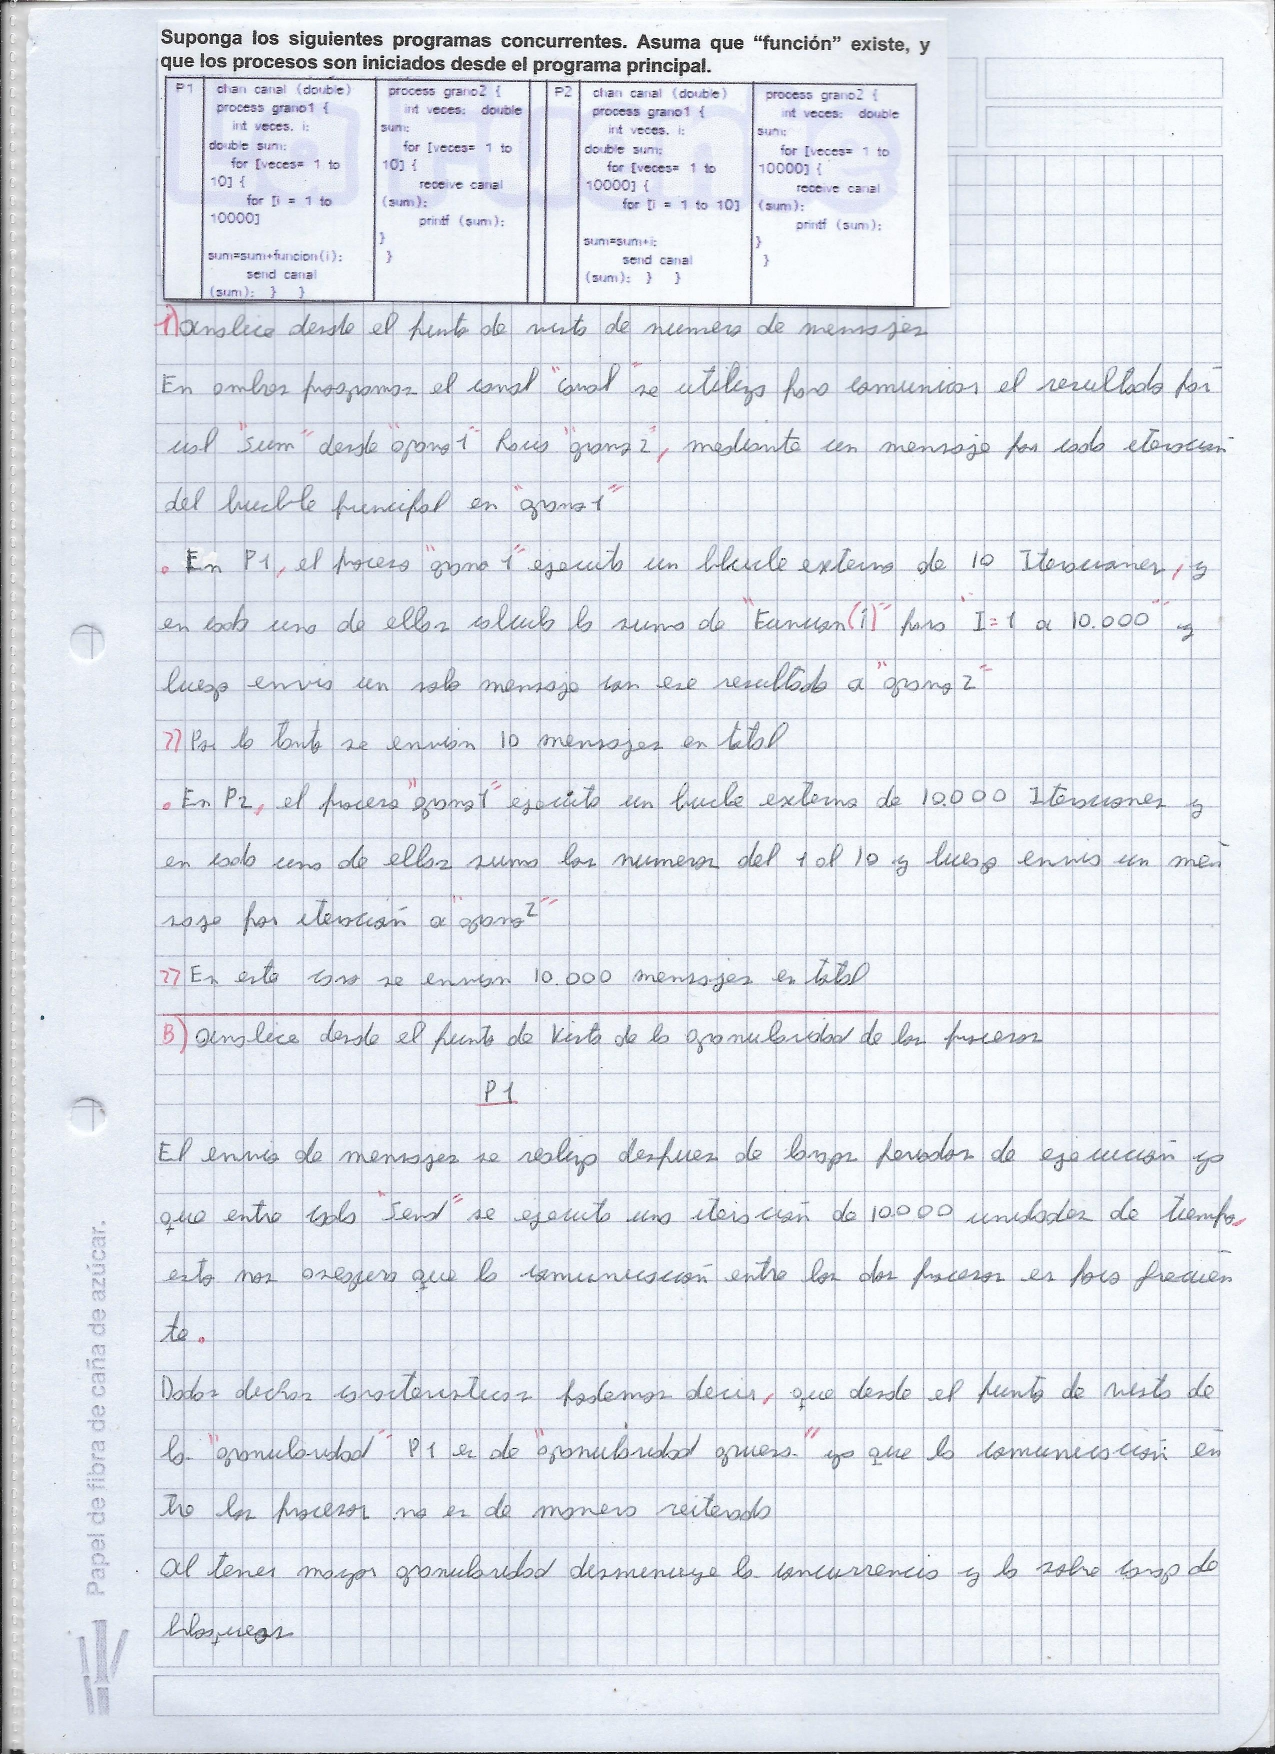 Suponga los siguientes programas concurrentes. Asuma que "función" existe, y
que los procesos son iniciados desde el programa principal.
P1
chan canal (double)
process grano1 {
int veces, i;
double sum;
for [veces= 1 to
10] {
for [i = 1 to
10000]
sum=sum+funcion(i);
send canal
(sum); } }
process grano2 {
int veces; double
sum;
for [veces= 1 to
10] {
receive canal
(sum);
printf (sum);
}
}
P2
chan canal (double)
process grano1 {
int veces, i;
double sum;
for [veces= 1 to
10000] {
for [i = 1 to 10]
sum=sum+i;
send canal
(sum); } }
process grano2 {
int veces; double
sum;
for [veces= 1 to
10000] {
receive canal
(sum);
printf (sum);
}
}
analice desde el punto de vista de numero de mensajes
En ambos programas el canal "canal" se utiliza para comunicar el resultado par
cial "sum" desde "grano1" hacia "grano2", mediante un mensaje por cada iteración
del bucble principal en "grano1"
• En P1, el proceso "grano 1" ejecuta un blucle externo de 10 Iteraciones, y
en cada una de ellas calcula la suma de "Funcion(i)" para "I=1 a 10.000" y
luego envia un solo mensaje con ese resultado a "grano2"
Por lo tanto se envian 10 mensajes en total
• En P2, el proceso "grano1" ejecuta un bucle externo de 10.000 Iteraciones y
en cada una de ellas suma los numeros del 1 al 10 y luego envia un men
saje por iteración a "grano2"
En este caso se envian 10.000 mensajes en total
B) analice desde el punto de Vista de la granularidad de los procesos
P1
El envio de mensajes se realiza despues de largos periodos de ejecución ya
que entre cada "Send" se ejecuta una iteración de 10.000 unidades de tiempo,
esto nos asegura que la comunicación entre los dos procesos es poco frecuen
te.
Dadas dichas caracteristicas podemos decir, que desde el punto de vista de
la "granularidad" P1 es de "granularidad gruesa" ya que la comunicación en
tre los procesos no es de manera reiterada
al tener mayor granularidad desminuye la concurrencia y la sobre carga de
bloqueos
Papel de fibra de caña de azúcar.